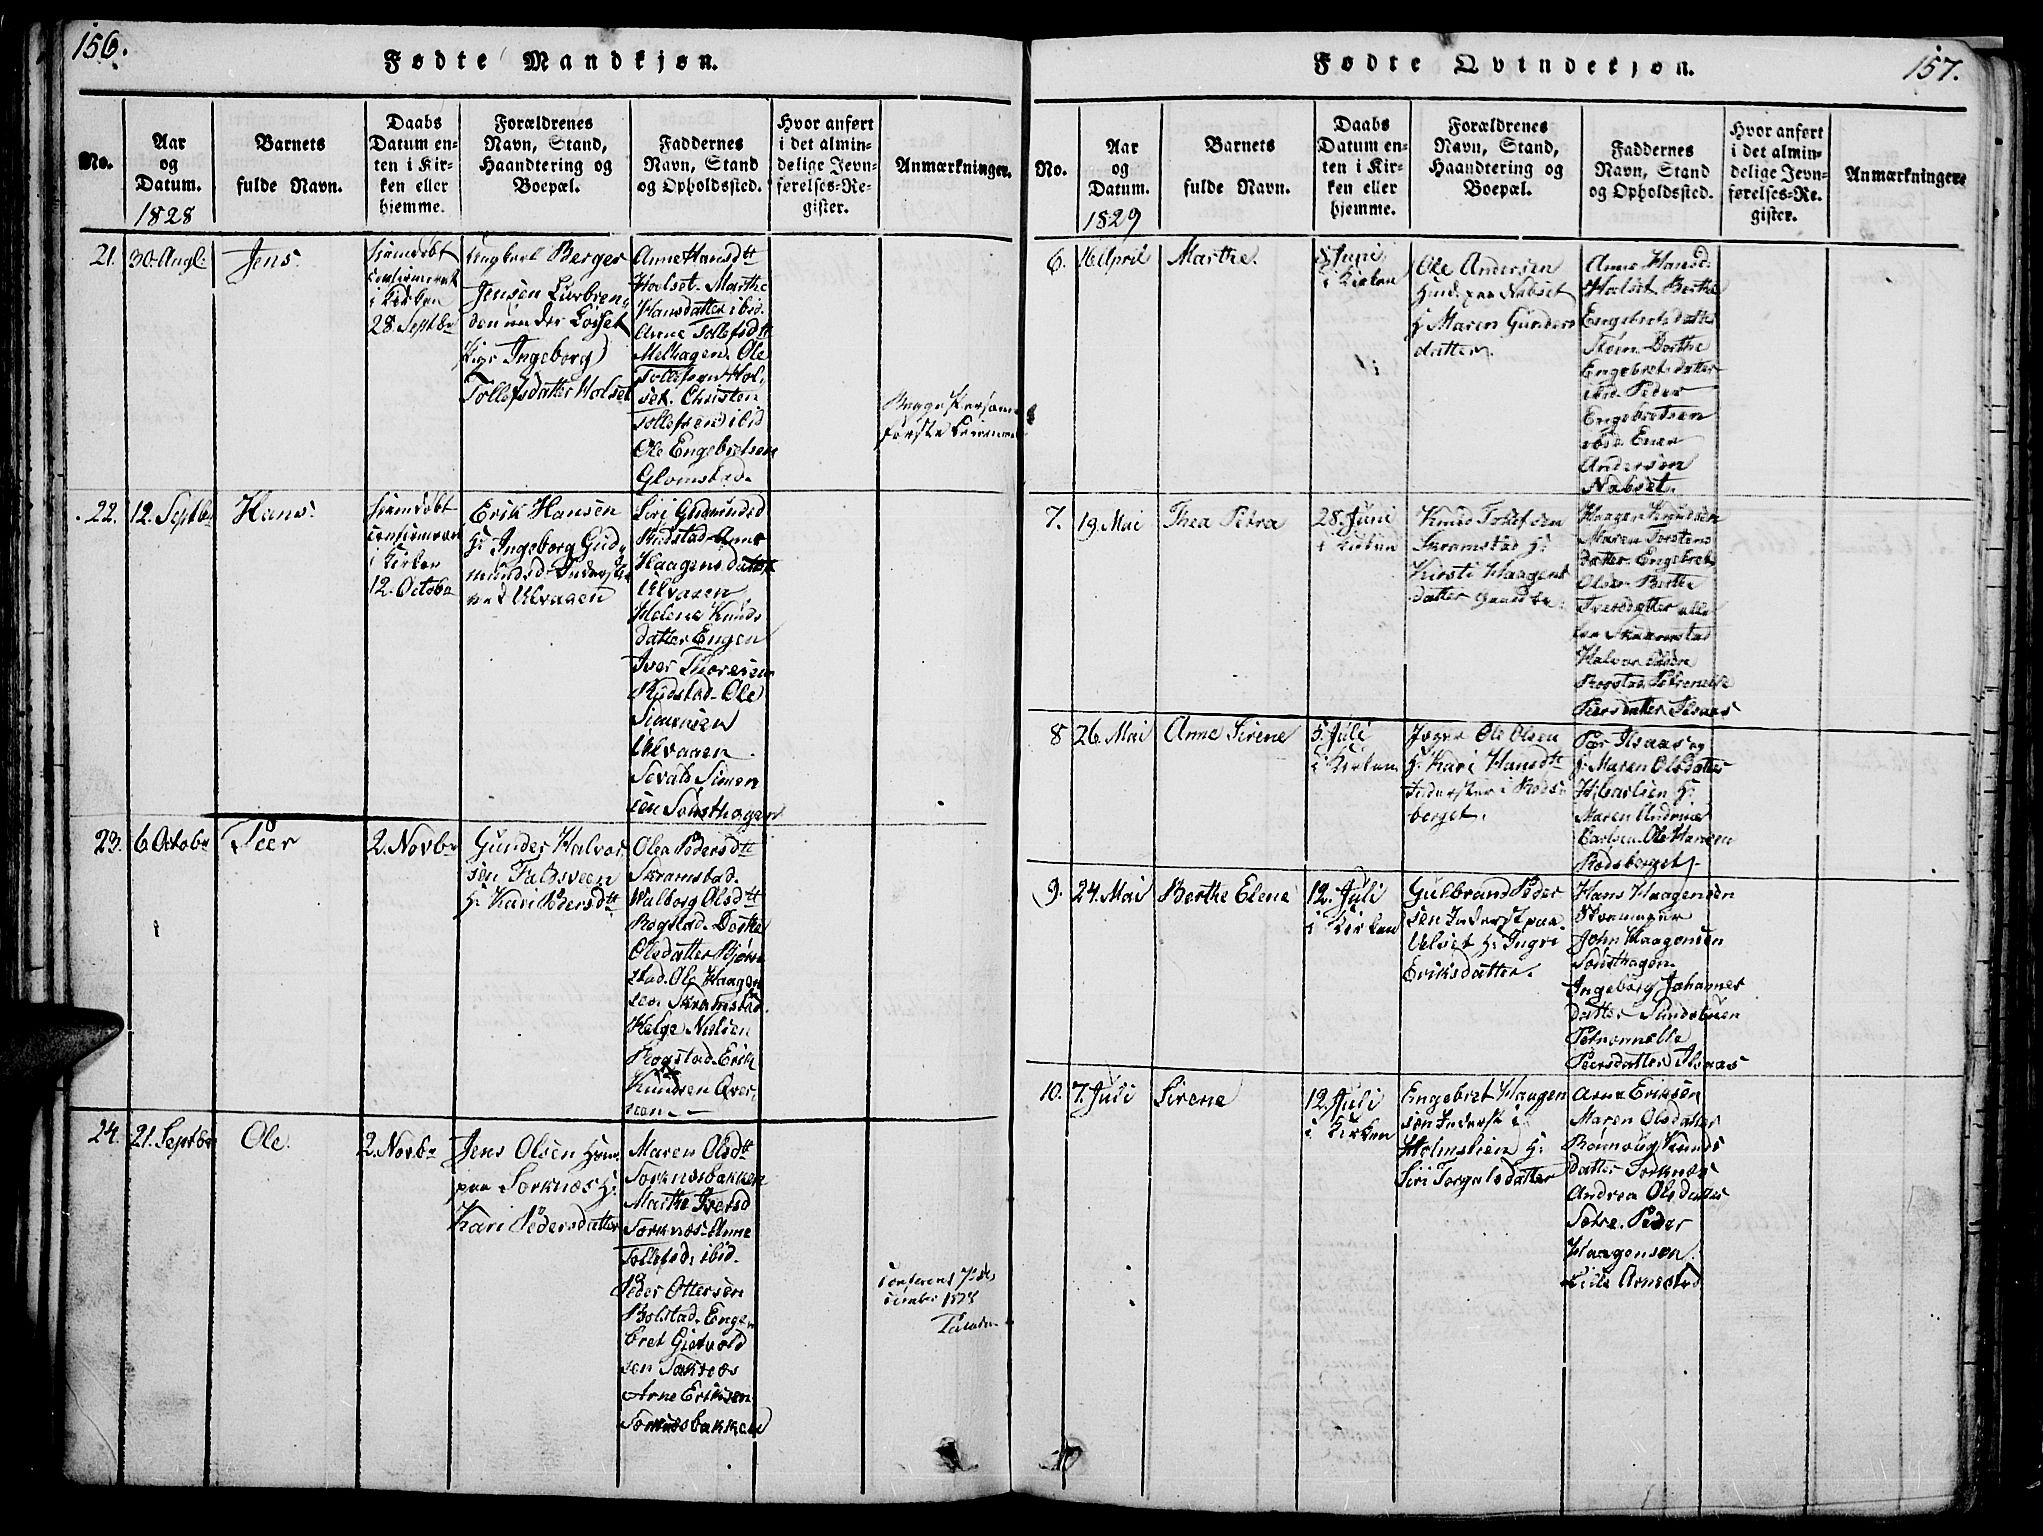 156.
Fødte Mandkjøn.
No.
Aar
og
Datum.
1828
Barnets
fulde Navn.
Daabs
Datum en-
ten i Kir-
ken eller
hjemme.
Forældrenes
Navn, Stand,
Haandtering og
Boepæl.
Faddernes
Navn, Stand
og Opholdssted.
Hvor anført
i det almin-
delige Jevn-
førelses-Re-
gister.
Anmærkninger.
21.
30. Aug.
Jens.
hjemdøbt
confirmeret
i Kirken
28. Septbr
Ungkarl Berger
Jensen
Pige Ingeborg
Tollefsdatter Holset
Anne Hansdtt
Holset. Marthe
Hansdatter ibid.
Anne Tollefsdtt
Melhagen. Ole
Tollefsen Hol-
set. Christen
Tollefsen ibid
Ole Engebretsen
Glomstad.
22.
12. Septbr
Hans.
hjemdøbt
i Kirken
12. Octobr
Erik Hansen
H: Ingeborg Gud-
mundsd. Inderst
Ulvaaen
Siri Gudmundsd
Rudstad Anne
Haagensdatter
Ulvaaen
Helene Knuds
datter Engen
Iver Thoresen
Rudstad. Ole
Simensen
Ulvaaen
Sevald Simen
sen Sønsthagen
23.
6. Octobr
Peer
2. Novbr
Gunder Halvor
sen Faldsveen
H: Kari Pedersdtt
Olea Pedersdtt
Skramstad.
Walborg Olsdtt
Rogstad. Dorthe
Olsdatter Bjørn
stad. Ole Haagen
sen Skramstad.
Helge Nielsen
Rogstad. Erik
Knudsen Øver
seen
24.
21. Septbr
Ole.
2. Novbr
Jens Olsen Huus
paa Sorknæs H:
Kari Pedersdatter
Maren Olsdtt
Sorknæsbakken
Marthe Iversd
Sorknæs. Anne
Tollefsd. ibid.
Peder Ottersen
Bolstad. Enge
bret Gietvold
sen Sorknæs
Arne Eriksen
Sorknæsbakken
157.
Fødte Qvindekjøn.
No.
Aar
og
Datum.
1829
Barnets
fulde Navn.
Daabs
Datum en-
ten i Kir-
ken eller
hjemme.
Forældrenes
Navn, Stand,
Haandtering og
Boepæl.
Faddernes
Navn, Stand
og Opholdssted.
Hvor anført
i det almin-
delige Jevn-
førelses-Re-
gister.
Anmærkninger.
6.
16 April
Marthe.
Juni
i Kirken
Ole Andersen
Huusm. paa Nabset
H: Maren Gunders
datter.
Anne Hansd.
Holset Berthe
Engebretsdatter
Steen. Dorthe
Engebretsdatter
ibid. Peder
Engebretsen
ibid. Ener
Andersen
Nabset.
7.
19. Mai
Thea Petra
28. Juni
i Kirken
Knud Tollefsen
Skramstad H:
Kirsti Haagens
datter
Haagen Knudsen
Maren Torstens
datter. Engebret
Olsen. Berthe
Iversdatter alle
fra Skramstad
Halvor Olsen
Rogstad. Petronelle
Peersdatter Ilsaas
8
26. Mai
Anne Sirene
5. Juli
i Kirken
Ole Olsen
H: Kari Hansdtt
Inderster i Rods
berget.
Peer Ilsaas og
H: Maren Olsdatter
H:
Maren Andrine
Carlsen. Ole Hansen
Rodsberget
9.
24. Mai
Berthe Elene
12. Juli
i Kirken
Gulbrand Peder
sen Inderst paa
Ulvet H: Ingri
Eriksdatter.
Hans Haagensen
John Haagensen
Sønsthagen.
Ingeborg Johannes
datter Sundsbuen
Petronnelle
Peersdatter Ilsaas
10.
7. Juli
Sirene
12. Juli
i Kirken
Engebret Haagen
sen Inderst i
Holmslien H:
Siri Torgalsdatter
Arne Eriksen
Maren Olsdatter
Knuds
datter Sorknæs
Andrea Olsdatter
Sætre. Peder
Haagensen
Lille Arnestad